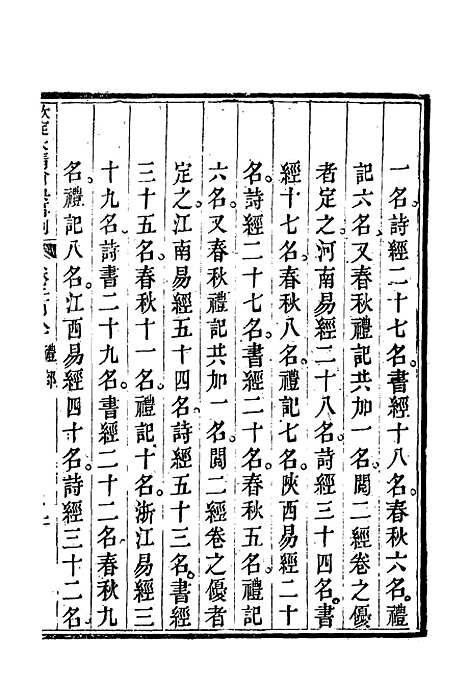 一名詩經二十七名書經十八名春秋六名禮
記六名又春秋禮記共加一名閱二經卷之優
者定之河南易經二十八名詩經三十四名書
經十七名春秋八名禮記七名陝西易經二十
名詩經二十七名書經二十名春秋五名禮記
六名又春秋禮記共加一名閱二經卷之優者
定之江南易經五十四名詩經五十三名書經
三十五名春秋十一名禮記十名浙江易經三
十九名詩書二十九名書經二十二名春秋九
名禮記八名江西易經四十名詩經三十二名
欽定大清會典則例 禮部